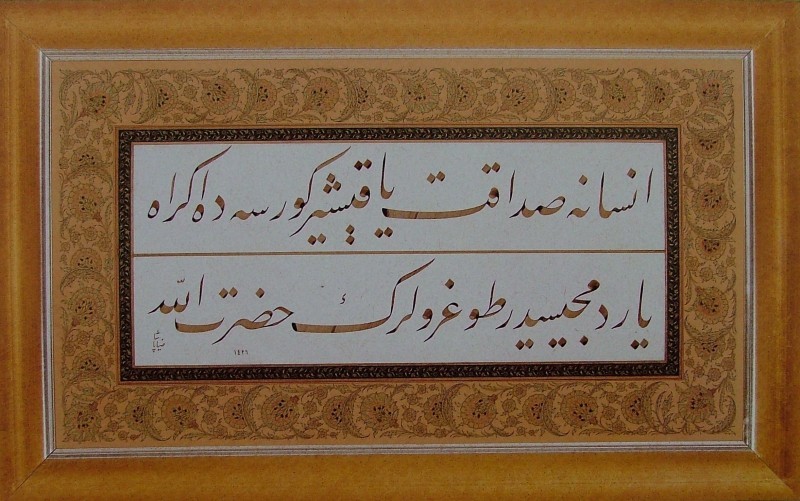 انسانه صداقت ياقيشير كورسه ده اكراه
ياردمجيسيدر طوغرولرك حضرت الله
١٤٢٦